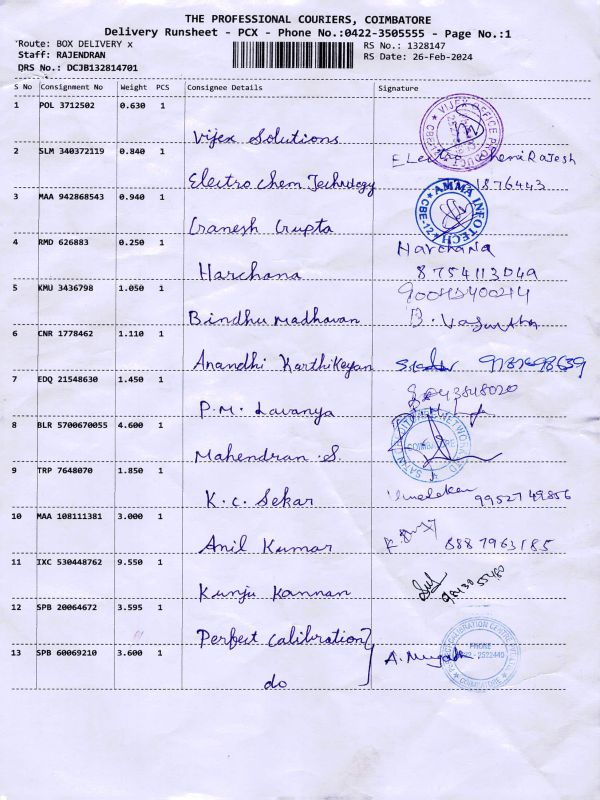 THE PROFESSIONAL COURIERS, COIMBATORE
Delivery Runsheet - PCX - Phone No.:0422-3505555 - Page No.:1
Route: BOX DELIVERY x RS No.: 1328147
Staff: RAJENDRAN RS Date: 26-Feb-2024
DRS No.: DCJB132814701
S No Consignment No Weight PCS Consignee Details Signature
1 POL 3712502 0.630 1
Vijex Solutions
2 SLM 340372119 0.840 1
Electro Chem Technology
3 MAA 942868543 0.940 1
AMMA INFOTECH
Ganesh Gupta
4 RMD 626883 0.250 1 Harchana
Harchana 8754113049
5 KMU 3436798 1.050 1
Bindhu madhavan
6 CNR 1778462 1.110 1
Anandhi Karthikeyan
7 EDQ 21548630 1.450 1
P.M. Lavanya
8 BLR 5700670055 4.600 1
Mahendran .S.
9 TRP 7648070 1.850 1
K.C. Sekar 9952749856
10 MAA 108111381 3.000 1
Anil Kumar 8887963185
11 IXC 530448762 9.550 1
Kunju Kannan
12 SPB 20064672 3.595 1
Perfect Calibration
13 SPB 60069210 3.600 1
do